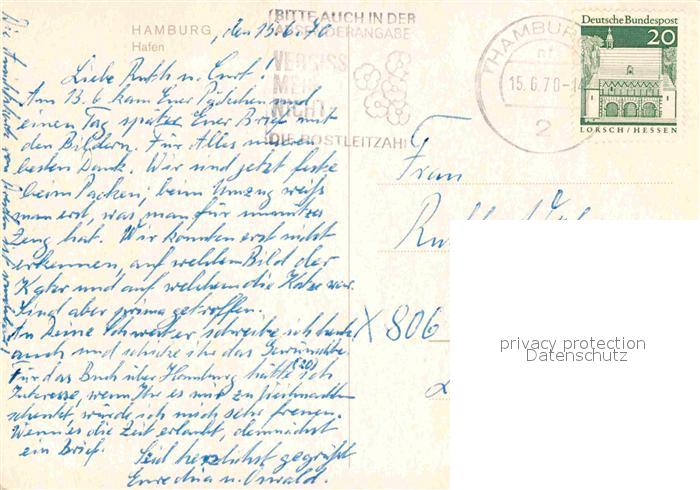 HAMBURG, den 15.6.70
Hafen
BITTE AUCH IN DER
ABSENDERANGABE
VERGISS
MEIN
NICHT
DIE POSTLEITZAHL
HAMBURG
15.6.70-14
2
Deutsche Bundespost
20
LORSCH/HESSEN
Liebe Ruth u. Curt!
Am 13.6. kam Euer Päckchen und
einen Tag später Euer Brief mit
den Bildern. Für Alles unseren
besten Dank. Wir sind jetzt feste
beim Packen; beim Umzug weiß
man erst, was man für unnützes
Zeug hat. Wir konnten erst nicht
erkennen, auf welchem Bild der
Kater und auf welchem die Katze war.
Sind aber prima getroffen.
An Deine Schwester schreibe ich heute
auch und schicke ihr das Gewünschte.
Für das Buch über Hamburg hätte ich
Interesse, wenn Ihr es mir zu Weihnachten
schenkt, würde ich mich sehr freuen.
Wenn es die Zeit erlaubt, demnächst
ein Brief.
Seid herzlichst gegrüßt
u. Oswald.
Die von
Frau
X 806
privacy protection
Datenschutz